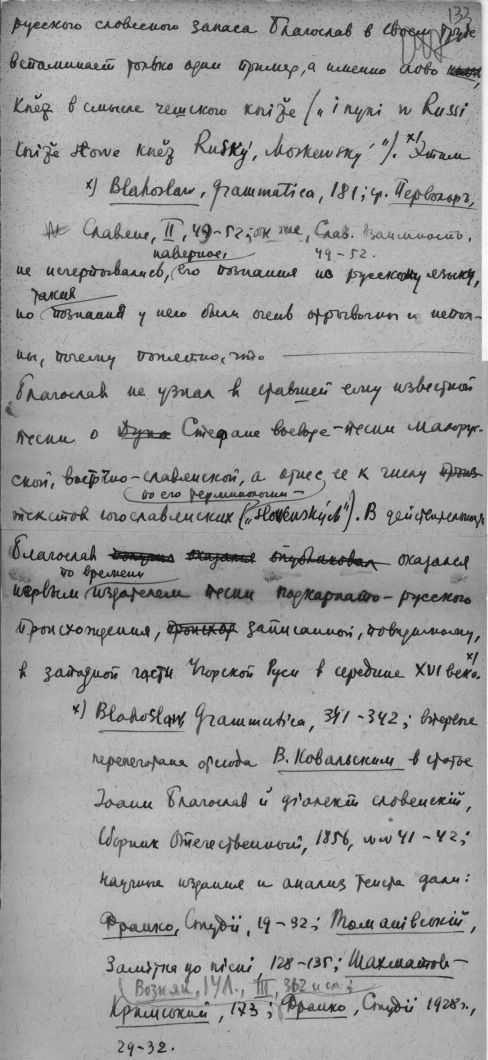 133
русского словесного запаса Благослав в своем труде
вспоминает только один пример, а именно слово
Kněz в смысле чешского kníže („i nyní w Russi
kníže slowe kněz Ruský, Moskewský“). x) Этим
x) Blahoslaw, Grammatica, 181; ср. Первольф,
Славяне, II, 49-52; он же, Слав. взаимность,
49-52.
наверное,
не исчерпывались, его познания по русскому языку,
такия
но познания у него были очень отрывочны и непол-
ны, почему понятно, что
Благослав не узнал в ставшей ему известной
песни о Стефане воеводе - песни малорус-
ской, восточно-славянской, а отнес ее к числу
по его терминологии -
текстов югославянских („slowenských“). В действительности
Благослав оказался
по времени
первым издателем песни подкарпато-русского
происхождения, записанной, повидимому,
в западной части Угорской Руси в середине XVI века. x)
x) Blahoslaw Grammatica, 341-342; впервые
перепечатана отсюда В. Ковальским в статье
Іоанн Благослав и діалект словенскій,
Сборник Отечественный, 1856, №№ 41-42;
научные издания и анализ текста дали:
Франко, Студії, 19-32; Томашівський,
Замітка до пісні, 128-135; Шахматов-
Возняк, ІУЛ., III, 362 и сл;
Кримський, 173; Франко, Студії 1928 г.,
29-32.